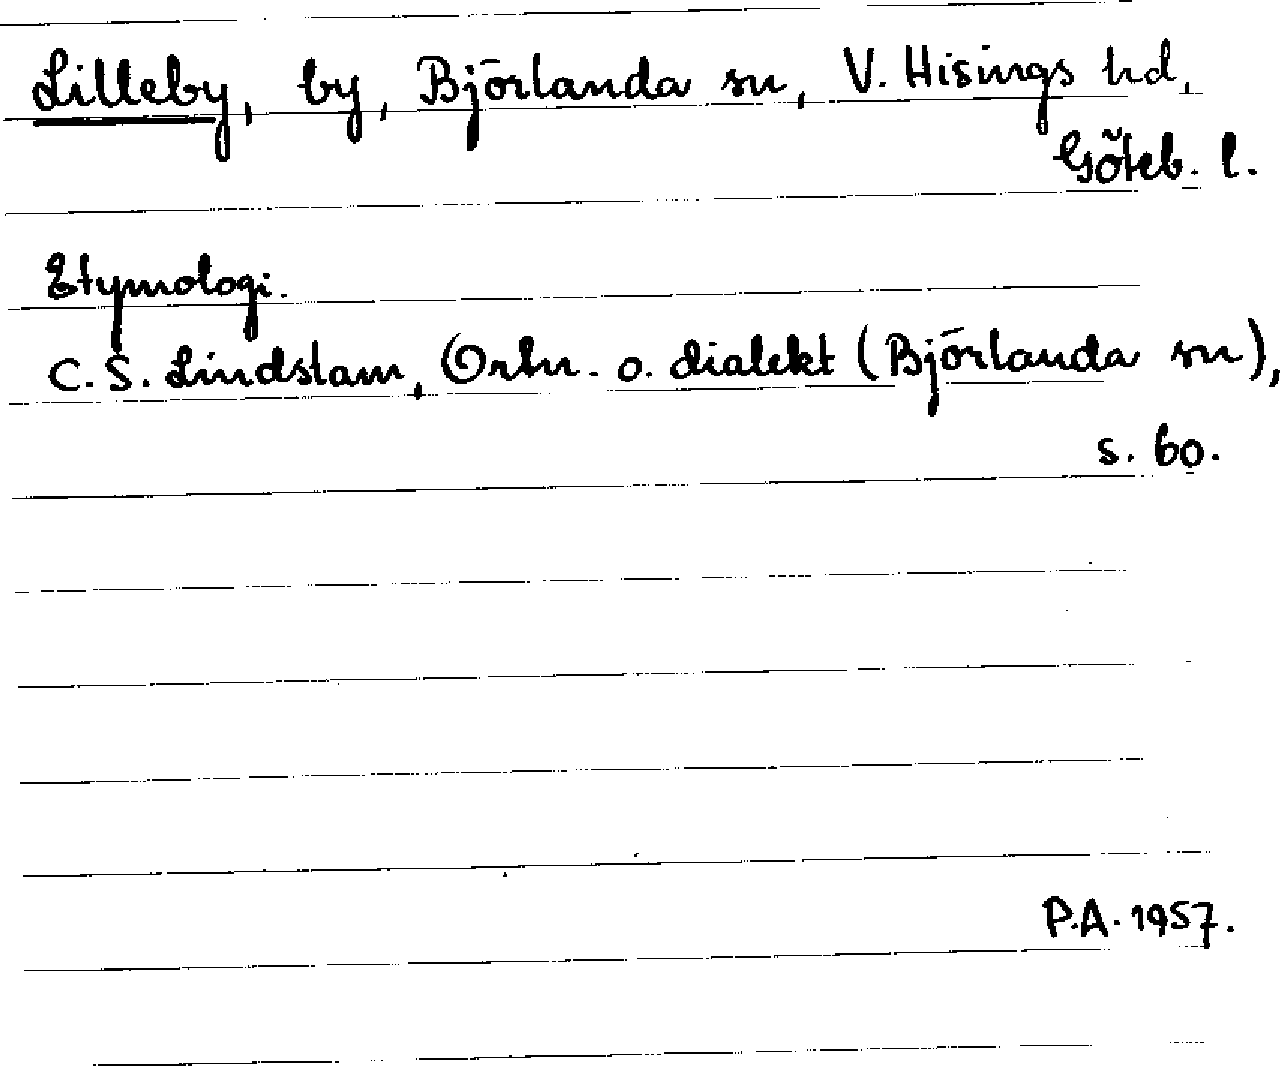 Lilleby, by, Björlanda sn, V. Hisings hd,
Göteb. l.
Etymologi.
C. S. Lindstam, Ortn. o. dialekt (Björlanda sn),
s. 60.
P.A. 1957.